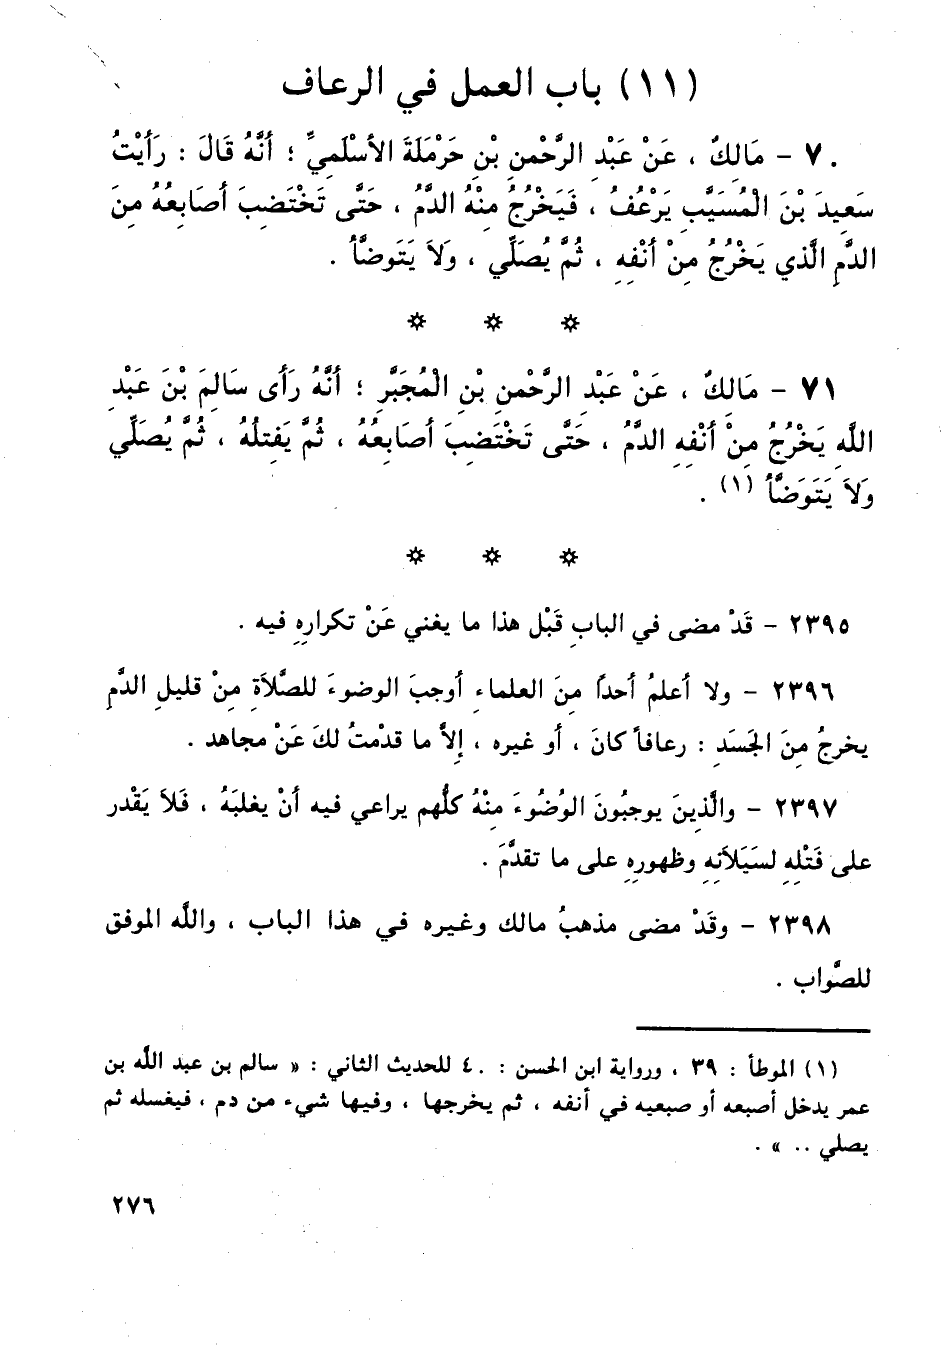 (١١) باب العمل في الرعاف
٧٠ - مَالِكٌ ، عَنْ عَبْدِ الرَّحْمنِ بْنِ حَرْمَلَةَ الأسْلَمِيِّ ؛ أنَّهُ قَالَ : رَأيْتُ
سَعِيدَ بْنَ الْمُسَيَّبِ يَرْعُفُ ، فَيَخْرُجُ مِنْهُ الدَّمُ ، حَتَّى تَخْتَضِبَ أصَابِعُهُ مِنَ
الدَّمِ الَّذي يَخْرُجُ مِنْ أنْفِهِ ، ثُمَّ يُصَلِّي ، وَلاَ يَتَوضَّأُ .
* * *
٧١ - مَالِكٌ ، عَنْ عَبْدِ الرَّحْمنِ بْنِ الْمُجَبَّرِ ؛ أنَّهُ رَأى سَالِمَ بْنَ عَبْدِ
اللَّهِ يَخْرُجُ مِنْ أنْفِهِ الدَّمُ ، حَتَّى تَخْتَضِبَ أصَابِعُهُ ، ثُمَّ يَفتلُهُ ، ثُمَّ يُصَلِّي
وَلاَ يَتَوَضَّأُ (١) .
* * *
٢٣٩٥ - قَدْ مضى في البابِ قَبْل هذا ما يغني عَنْ تكرارِهِ فيه .
٢٣٩٦ - ولا أعلمُ أحداً مِنَ العلماءِ أوجبَ الوضوءَ للصَّلاَةِ مِنْ قليلِ الدَّمِ
يخرجُ مِنَ الجَسَدِ : رعافاً كانَ ، أو غيره ، إِلاَّ ما قدْمتُ لكَ عَنْ مجاهد .
٢٣٩٧ - والَّذينَ يوجبُونَ الوُضُوءَ مِنْهُ كلُّهم يراعي فيه أنْ يغلبَهُ ، فَلاَ يَقْدر
على فَتْلِهِ لسَيَلاَنِهِ وظهورِهِ على ما تقدَّمَ .
٢٣٩٨ - وقَدْ مضى مذهبُ مالك وغيره في هذا الباب ، واللَّه الموفق
للصَّواب .
(١) الموطأ : ٣٩ ، ورواية ابن الحسن : ٤٠ للحديث الثاني : « سالم بن عبد اللَّه بن
عمر يدخل أصبعه أو صبعيه في أنفه ، ثم يخرجها ، وفيها شيء من دم ، فيفسله ثم
يصلي .. » .
٢٧٦